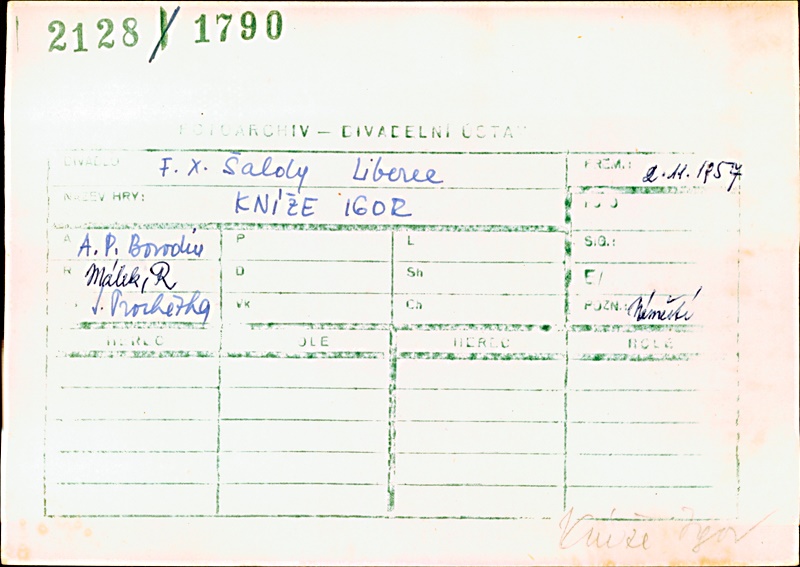 2128/1790
FOTOARCHIV – DIVADELNÍ ÚSTAV
DIVADLO: F. X. Šaldy Liberec PREM.: 2.11.1957
NÁZEV HRY: KNÍŽE IGOR FOTO
A A. P. Borodin P L S.G.:
R Málek, R D Sh E/
J. Procházka Vk Ch POZN.: Náměstí
HEREC ROLE HEREC ROLE
Kníže Igor